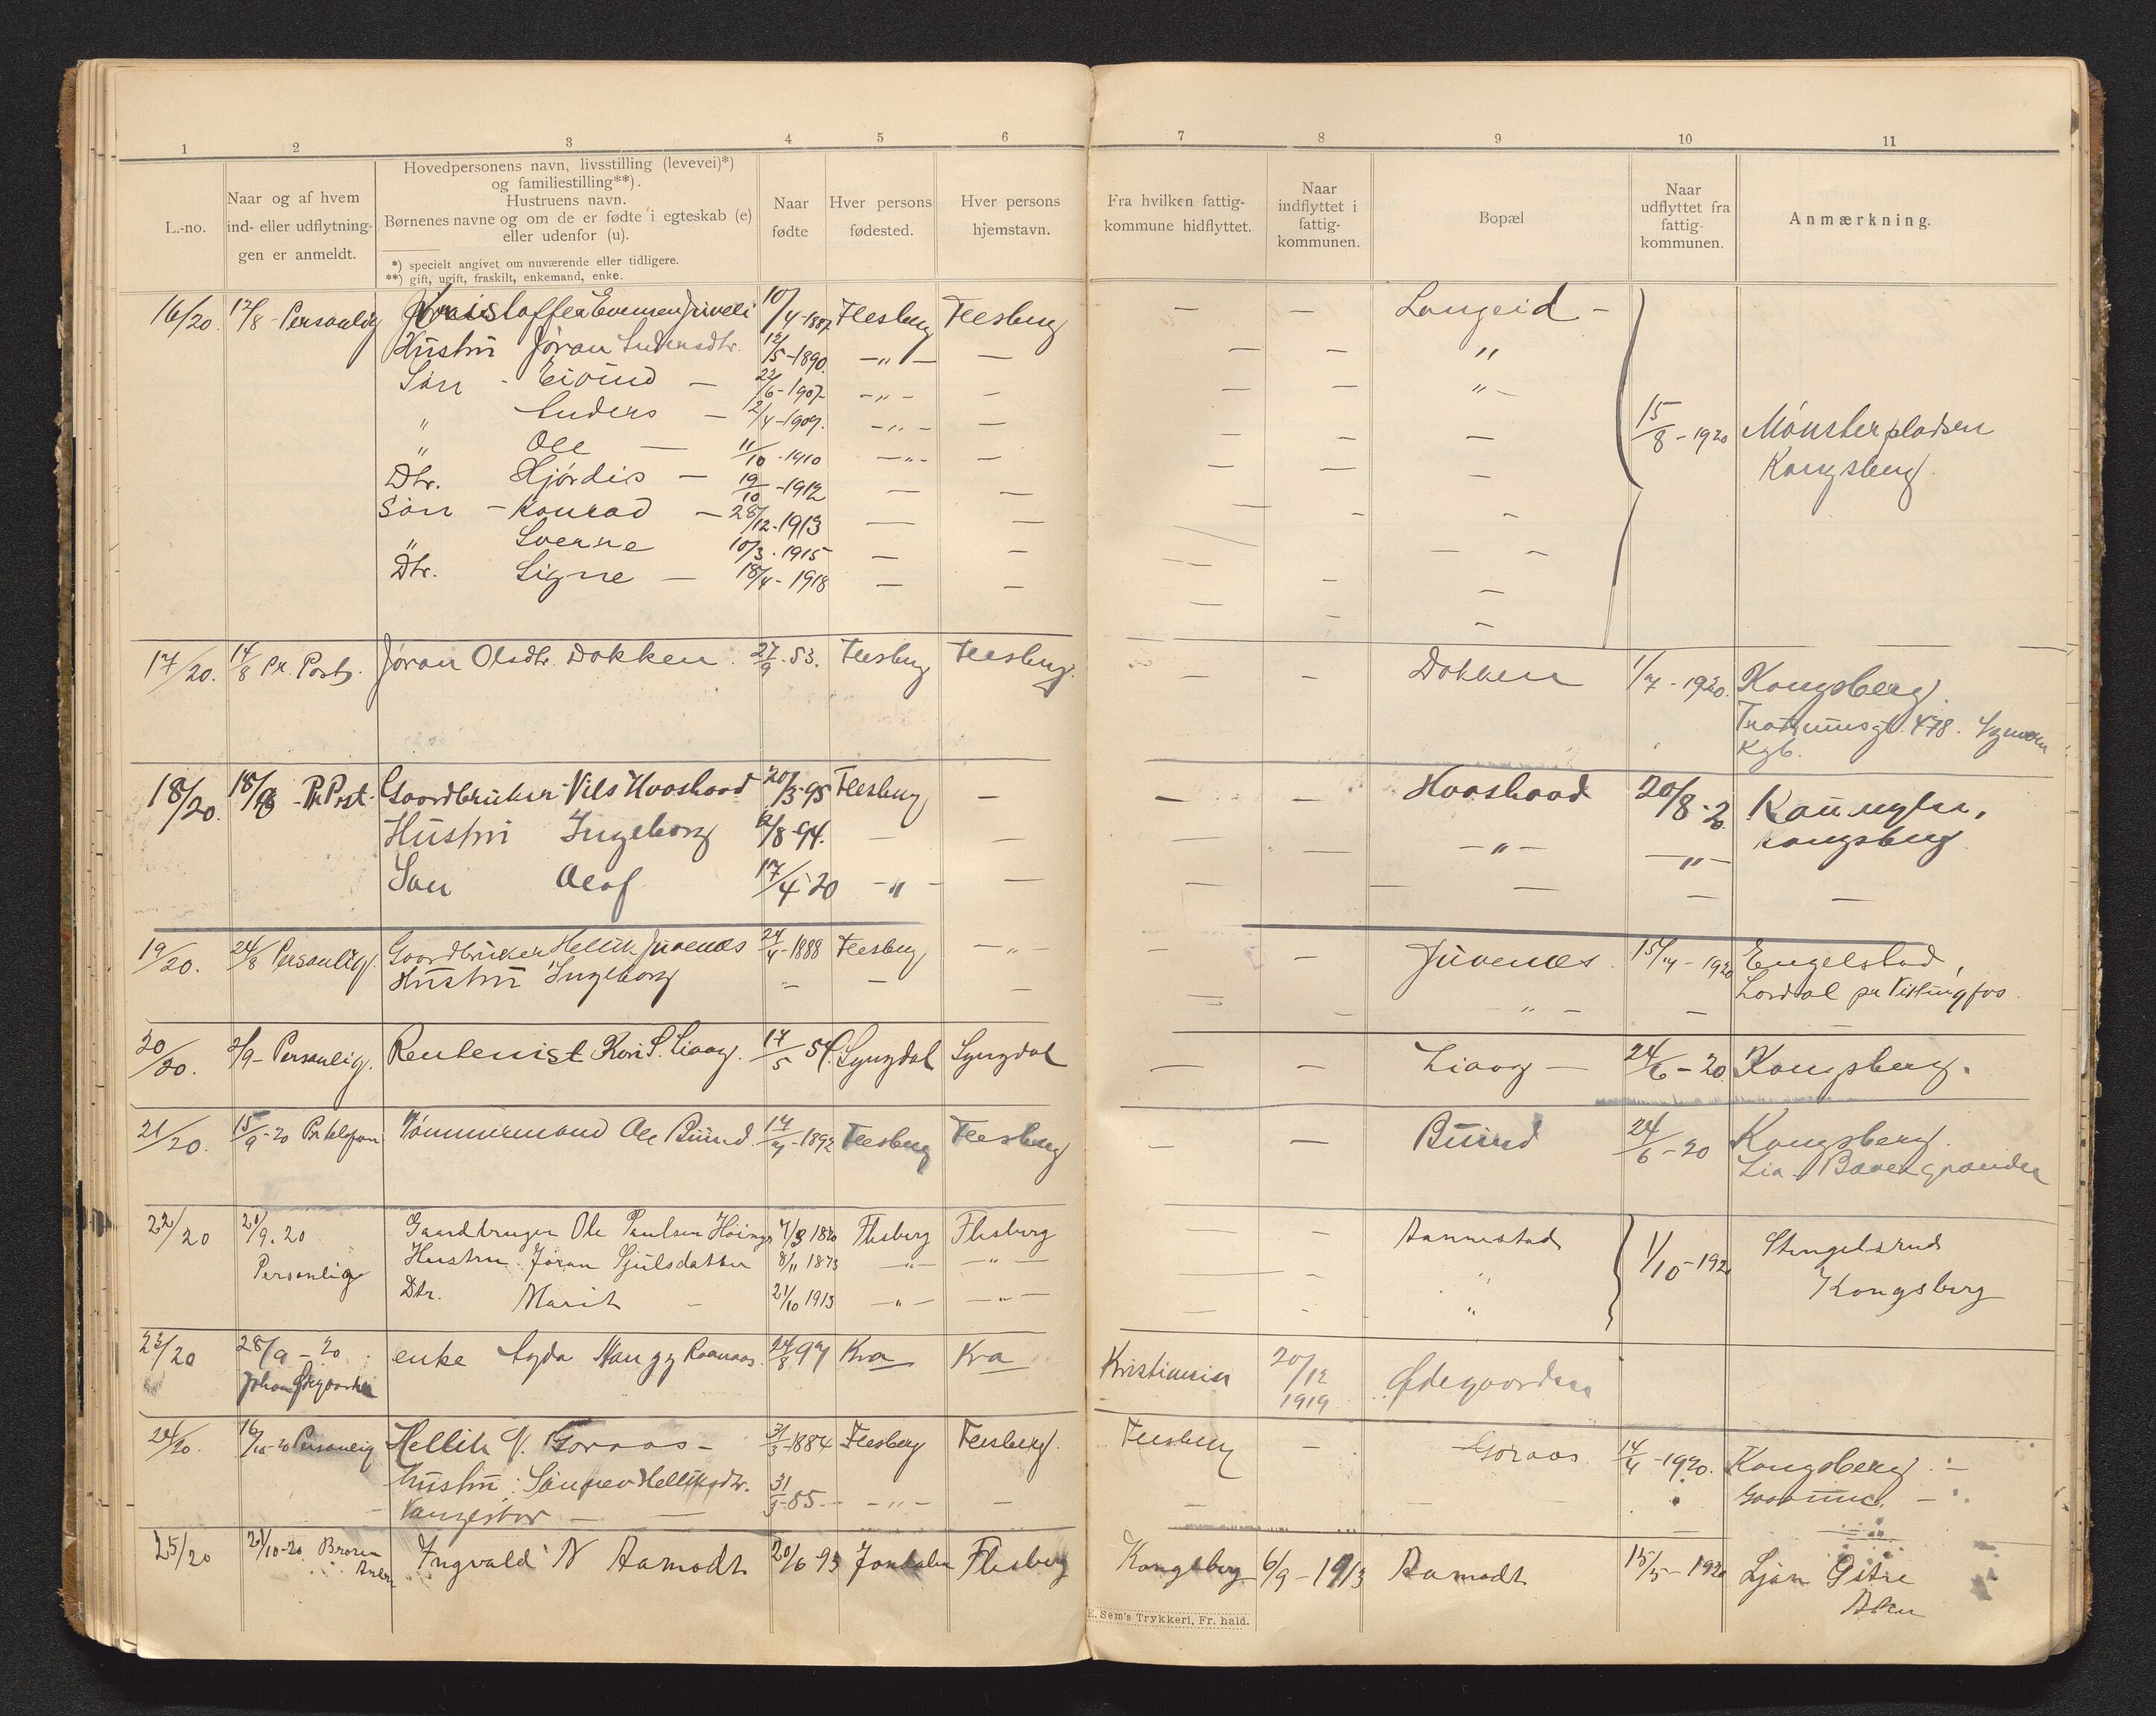 1 2 3 4 5 6 7 8 9 10 11
L.-no.
Naar og af hvem
ind- eller udflytnin-
gen er anmeldt.
Hovedpersonens navn, livsstilling (levevei)*)
og familiestilling**).
Hustruens navn.
Børnenes navne og om de er fødte i egteskab (e)
eller udenfor (u).
*) specielt angivet om nuværende eller tidligere.
**) gift, ugift, fraskilt, enkemand, enke.
Naar
fødte
Hver persons
fødested.
Hver persons
hjemstavn.
Fra hvilken fattig-
kommune hidflyttet.
Naar
indflyttet i
fattig-
kommunen.
Bopæl
Naar
udflyttet fra
fattig-
kommunen.
Anmærkning.
16/20. 12/8 - Personlig Kristoffer Evensen 10/4-1887 Flesberg Flesberg — — Langeid -
Hustru Jøran 12/5-1890. -„- — — — „
Søn - Eivind — 22/6-1907 -„- — — — „ -
„ Anders — 2/4-1909. -„- — — — 15/8-1920 Mønsterpladsen
„ Ole — 11/10-1910 -„- — — — — Kongsberg.
Dtr. Hjørdis — 19/10-1912 — — — — —
Søn - Konrad — 28/12-1913 — — — — —
„ Sverre 10/3-1915 — — — — —
Dtr. Signe — 18/4-1918 — — — — —
17/20. 14/8 Pr. Post. Jøran Olsdtr. Dokken. 27/9.53. Flesberg Flesberg. — — Dokken 1/7-1920. Kongsberg.
478.
Kgb.
18/20. 18/8 - Pr Post. Gaardbruker Nils Haashaad 20/3-95 Flesberg — — — Haashaad 20/8-20.
Hustru Ingeborg 8-94. — — — — -„- -„- Kongsberg
Søn Olaf 17/4-20 -„- — — — — — —
19/20. 24/8 Personlig. Gaardbruker Hellik Juvenes 24/4-1888 Flesberg -„- — — Juvenes. 15/4-1920 Engelstad,
Hustru Ingeborg „ — — — — „ - — Lordal pr Vittingfos.
20/20. 2/9- Personlig. Rentenist Kari S. Liaag. 17/5 54. Lyngdal Lyngdal — — Liaag — 24/6-20. Kongsberg.
21/20. 15/9-20 Pr telefon Tømmermand Ole Buind. 14/7-1892 Flesberg Flesberg — — Buind 24/6-20 Kongsberg.
Lia - Bævergrænden
22/20 21/9.20 Gaardbruger Ole Paulsen 7/3 1880 Flesberg Flesberg — — Aannestad 1/10-1920 Stengelsrud
Personlig Hustru Jøran Sjulsdatter 8/11 1873 -„- -„- — — „ Kongsberg
Dtr. Marit - 21/10 1913 -„- -„- — — „
23/20 28/9-20 enke Haugg Raanaas. 24/8 97 Kra Kra Kristiania 20/12 1919 Ødegaarden
Johan Ødegaarden
24/20. 16/10-20 Personlig Hellik Goraas - 31/3-1884 Flesberg Flesberg. Flesberg — Goraas. 14/4-1920. Kongsberg. -
Hustru: Helliksdtr. 31/3-85 -„- — — — —
25/20 21/10-20 Broren Ingvald N Aamodt 20/6-93 Jondalen Flesberg Kongsberg 6/9-1913 Aamodt 15/5-1920 Ljan Østre
Aker
E. Sem's Trykkeri, Fr. hald.